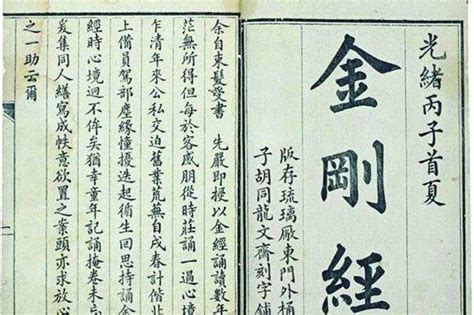 光緒丙子首夏
金剛經
版存琉璃厰東門外桶
子胡同龍文齋刻字鋪
余自束髮受書 先嚴即授以金經誦讀數年
茫無所得但每於客感朋從時莊誦一過心境
乍清年來公私交迫舊業荒蕪自戌春計偕北
上備員駕部塵緣憧擾迭起循生回思持誦金
經時心境迥不侔矣猶幸童年記誦掩卷未忘
爰集同人繕寫成帙意欲置之案頭亦求放心
之一助云爾